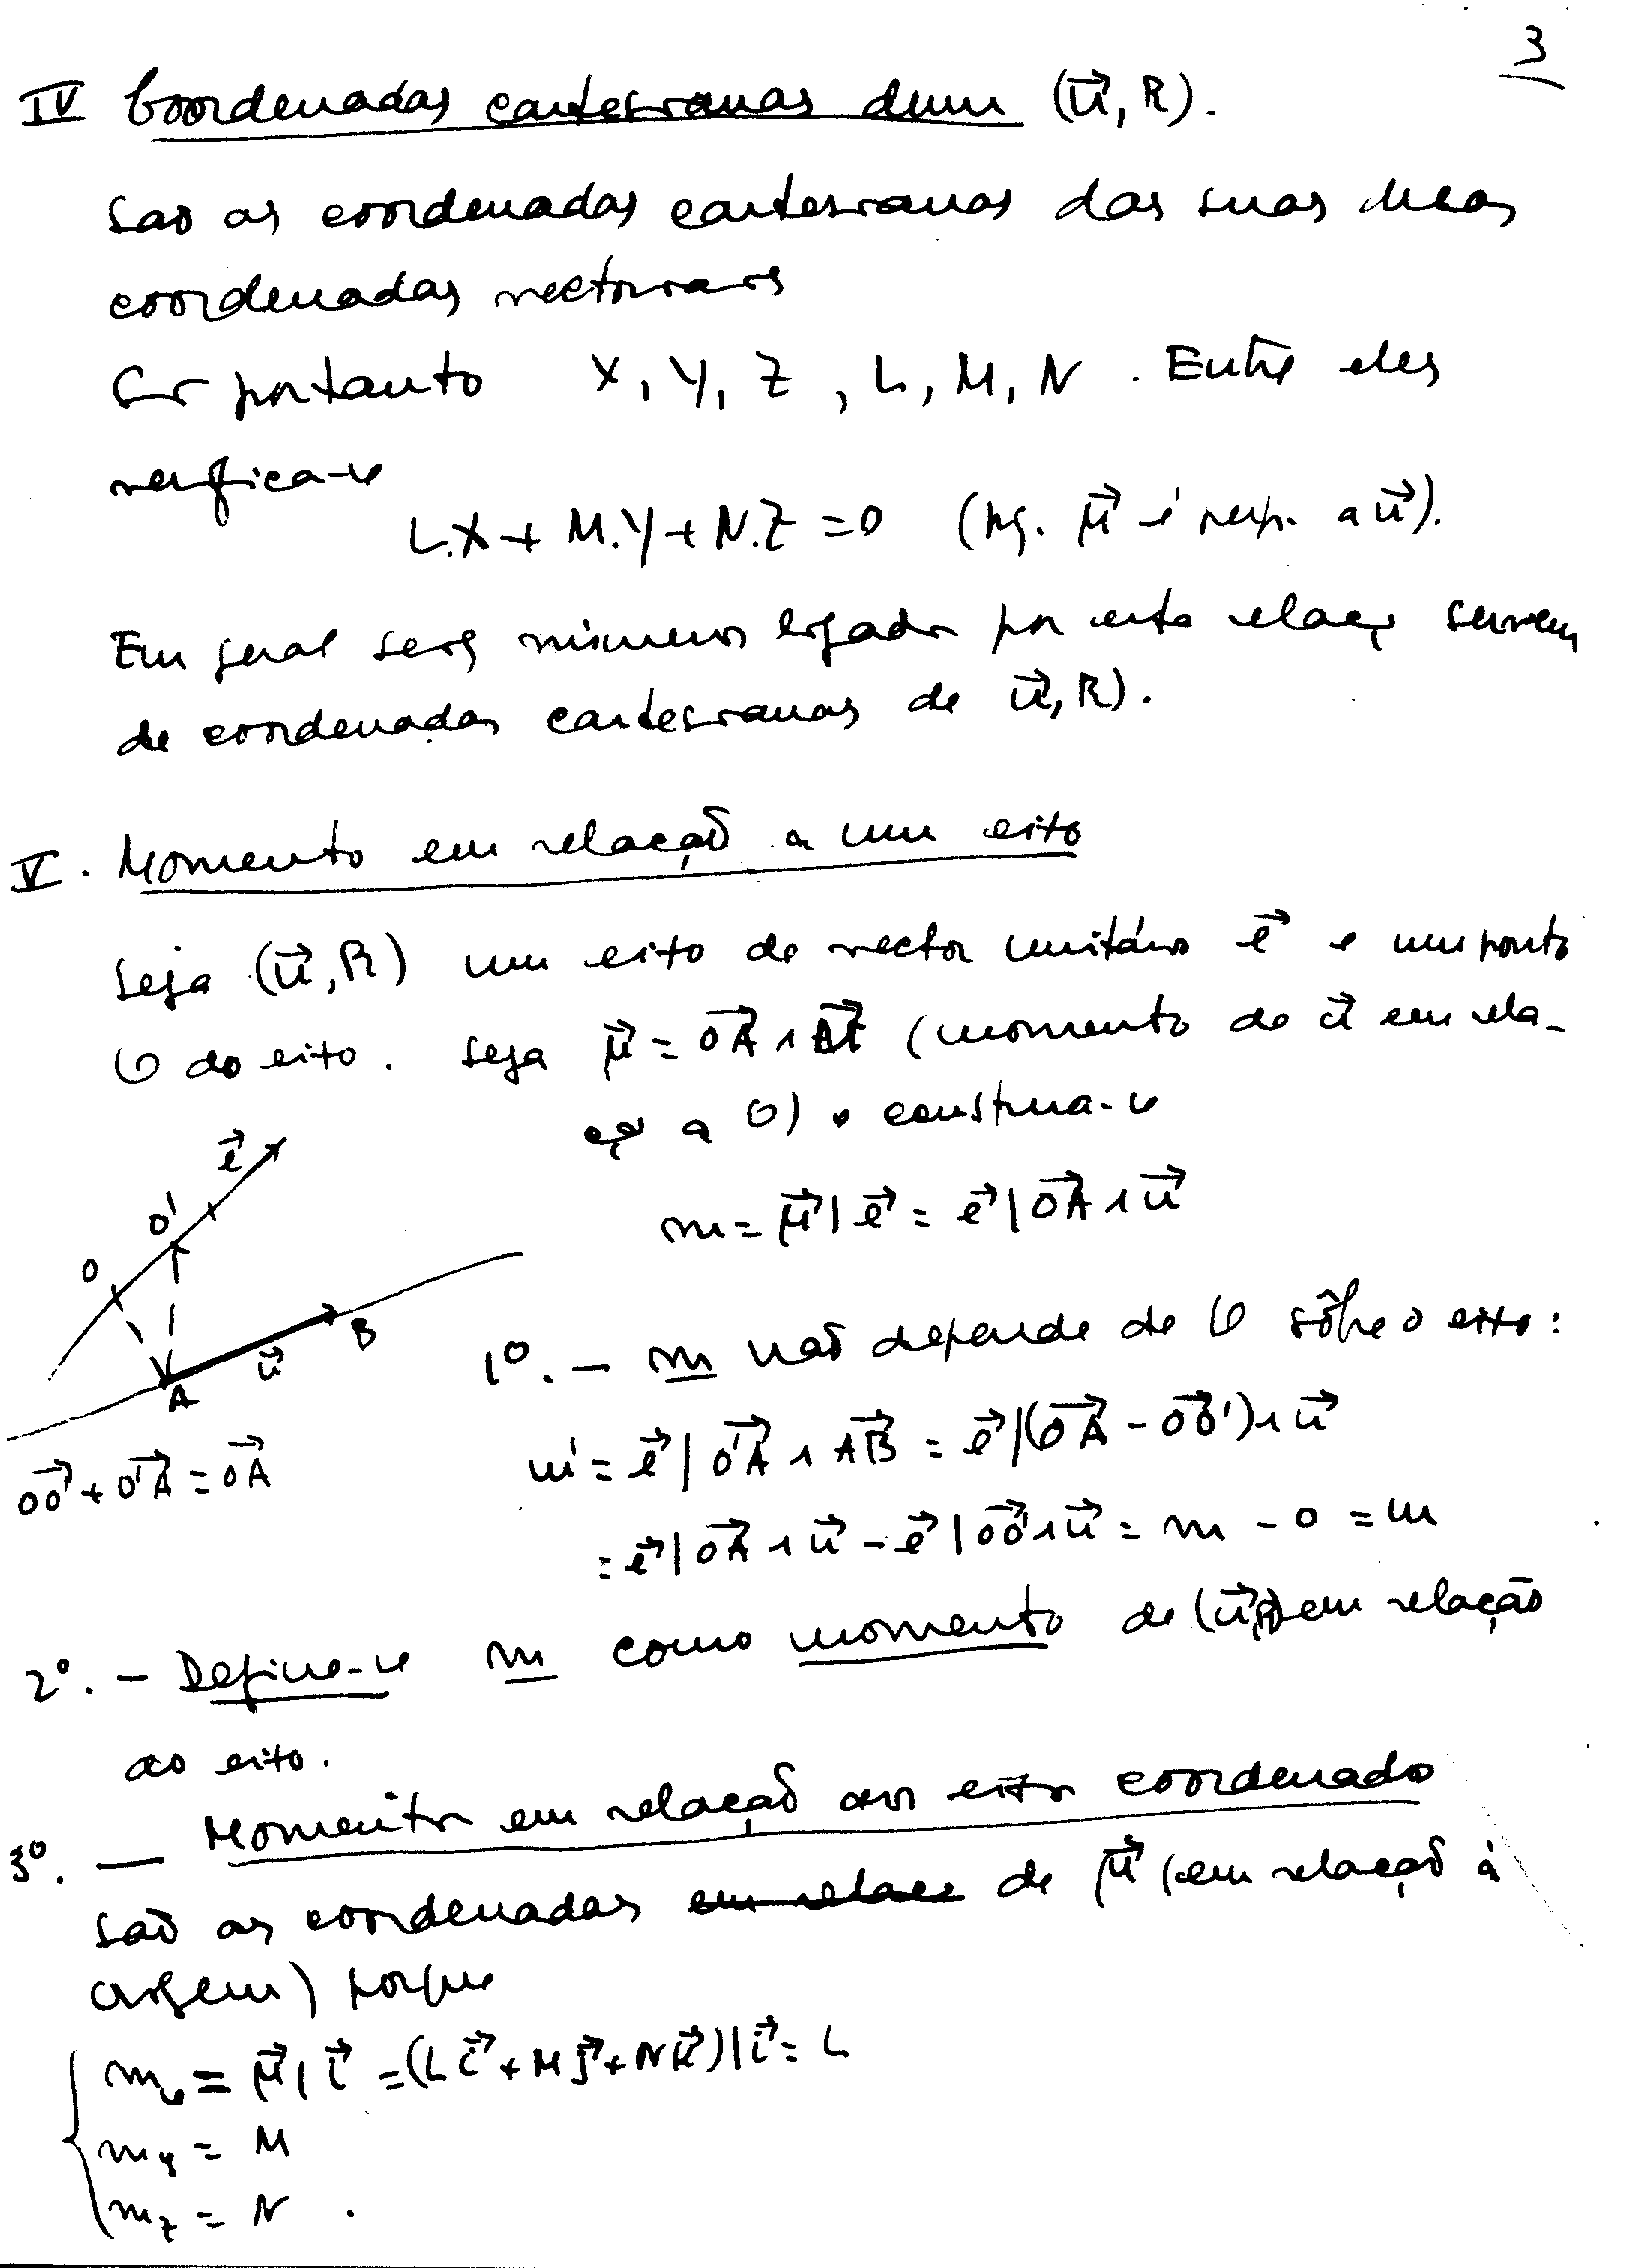 3
IV Coordenadas cartesianas dum (u⃗, R).
São as coordenadas cartesianas das suas
coordenadas vectoriais
portanto X, Y, Z, L, M, N. Entre eles
verifica-se
L.X + M.Y + N.Z = 0 (pq. μ⃗ é perp. a u⃗).
Em geral seis números ligados por esta relaç servem
de coordenadas cartesianas de u⃗, R).
V. Momento em relação a um eixo
Seja (u⃗, R) um eixo de vector unitário e⃗ e um ponto
O do eixo. Seja μ⃗ = OA⃗ ∧ (momento de u⃗ em rela-
ção a O) e construa-se
m = μ⃗ | e⃗ = e⃗ | OA⃗ ∧ u⃗
e⃗
O'
O
A
u⃗
B
OO'⃗ + O'A⃗ = OA⃗
1º. — m não depende de O sôbre o eixo:
m' = e⃗ | O'A⃗ ∧ AB⃗ = e⃗ | (OA⃗ - OO'⃗) ∧ u⃗
= e⃗ | OA⃗ ∧ u⃗ - e⃗ | OO'⃗ ∧ u⃗ = m - 0 = m
2º. — Define-se m como momento de (u⃗, R) em relação
ao eixo.
3º. — Momentos em relação aos eixos coordenados
são as coordenadas em relace de μ⃗ (em relação à
origem) porque
mₓ = μ⃗ | i⃗ = (L i⃗ + M j⃗ + N k⃗) | i⃗ = L
m_y = M
m_z = N.